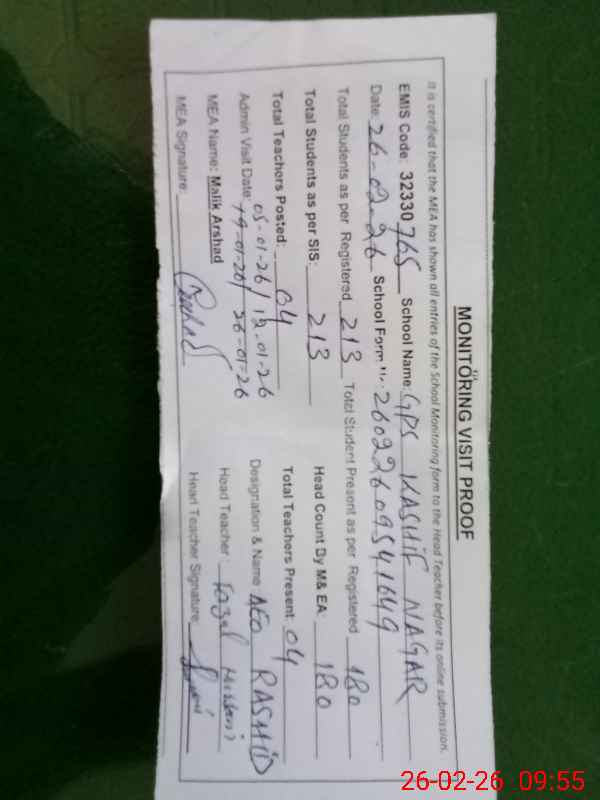 MONITORING VISIT PROOF
It is certified that the MEA has shown all entries of the School Monitoring form to the Head Teacher before its online submission.
EMIS Code: 32330765 School Name: GPS KASHIF NAGAR
Date: 26-02-26 School Form No: 26022609541649
Total Students as per Registered 213 Total Student Present as per Registered 180
Total Students as per SIS: 213 Head Count By M& EA: 180
Total Teachers Posted: 04 Total Teachers Present: 04
05-01-26 / 12-01-26
Admin Visit Date: 19-01-26 / 26-01-26 Designation & Name AEO RASHID
MEA Name: Malik Arshad Head Teacher: Fazal Hussain
MEA Signature: Head Teacher Signature:
26-02-26 09:55